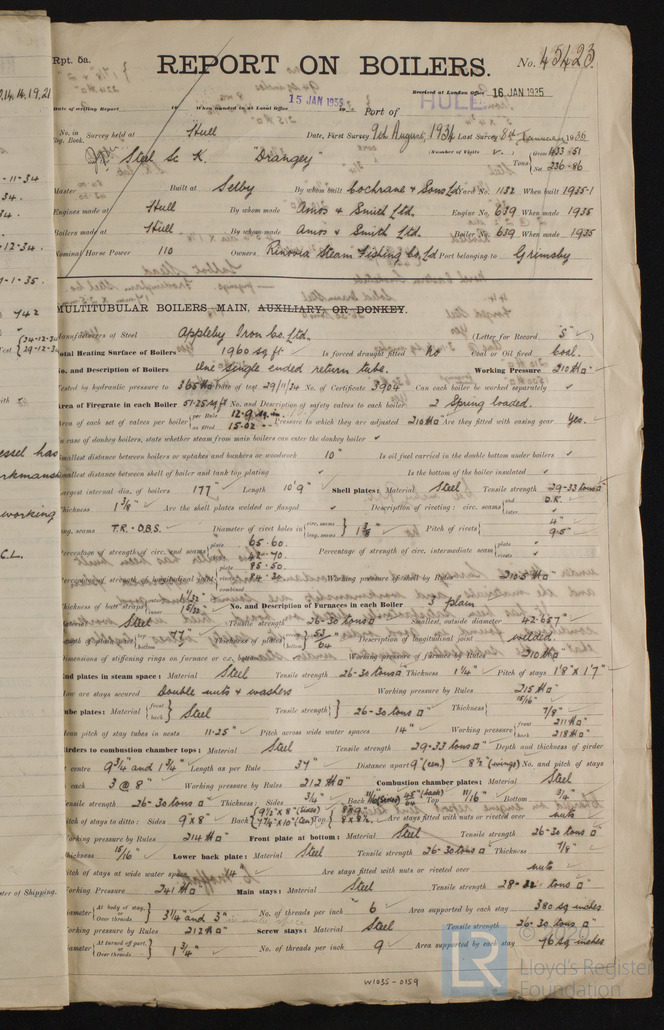 Rpt. 5a.
REPORT ON BOILERS.
No. 45423.
Received at London Office 16 JAN 1935
Date of writing Report 19 When handed in at Local Office 15 JAN 1935 Port of HULL
No. in Reg. Book. Survey held at Hull Date, First Survey 9th August, 1934 Last Survey 8th January 1935
Steel Sc K. "Drangey" (Number of Visits) Tons Gross 433.51 Net 236.86
Master Built at Selby By whom built Cochrane & Sons Ltd Yard No. 1132 When built 1935-1
Engines made at Hull By whom made Amos & Smith Ltd. Engine No. 639 When made 1935
Boilers made at Hull By whom made Amos & Smith Ltd. Boiler No. 639 When made 1935
Nominal Horse Power 110 Owners Rinovia Steam Fishing Co. Ltd Port belonging to Grimsby
MULTITUBULAR BOILERS, MAIN, AUXILIARY, OR DONKEY.
Manufacturers of Steel Appleby Iron Co. Ltd. (Letter for Record S)
Total Heating Surface of Boilers 1960 sq ft Is forced draught fitted No Coal or Oil fired Coal.
No. and Description of Boilers One single ended return tube. Working Pressure 210 lb □"
Tested by hydraulic pressure to 365 lb Date of test 29/11/34 No. of Certificate 3904 Can each boiler be worked separately
Area of Firegrate in each Boiler 51.25 sq ft No. and Description of safety valves to each boiler 2 Spring loaded.
Area of each set of valves per boiler per Rule 12.9 sq. in. as fitted 15.02 Pressure to which they are adjusted 210 lb □" Are they fitted with easing gear Yes.
In case of donkey boilers, state whether steam from main boilers can enter the donkey boiler
Smallest distance between boilers or uptakes and bunkers or woodwork 10" Is oil fuel carried in the double bottom under boilers
Smallest distance between shell of boiler and tank top plating Is the bottom of the boiler insulated
Largest internal dia. of boilers 177" Length 10'9" Shell plates: Material Steel Tensile strength 29-33 tons □"
Thickness 1 3/8" Are the shell plates welded or flanged Description of riveting: circ. seams end D.R. inter.
long. seams T.R. D.B.S. Diameter of rivet holes in circ. seams long. seams 1 3/8" Pitch of rivets 4" 9.5"
Percentage of strength of circ. end seams plate 65.60. rivets 42.70 Percentage of strength of circ. intermediate seam plate rivets
Percentage of strength of longitudinal joint plate 85.50. rivets combined Working pressure of shell by Rules 210.5 lb □"
Thickness of butt straps outer 1 1/32" inner 1 5/32" No. and Description of Furnaces in each Boiler 3 plain
Material Steel Tensile strength 26-30 tons □" Smallest outside diameter 42.657"
Length of plain part top 77" bottom Thickness of plates 53/64 Description of longitudinal joint welded.
Dimensions of stiffening rings on furnace or c.c. bottom Working pressure of furnace by Rules 210 lb □"
End plates in steam space: Material Steel Tensile strength 26-30 tons □" Thickness 1 1/4" Pitch of stays 1'8" x 1'7"
How are stays secured Double nuts & washers Working pressure by Rules 215 lb □"
Tube plates: Material front back Steel Tensile strength 26-30 tons □" Thickness 15/16" 7/8"
Mean pitch of stay tubes in nests 11.25" Pitch across wide water spaces 14" Working pressure front 211 lb □" back 218 lb □"
Girders to combustion chamber tops: Material Steel Tensile strength 29-33 tons □" Depth and thickness of girder
at centre 9 3/4" and 1 3/4" Length as per Rule 37" Distance apart 9" (cen) 8 1/2" (wings) No. and pitch of stays
in each 3 @ 8" Working pressure by Rules 212 lb □" Combustion chamber plates: Material Steel
Tensile strength 26-30 tons □" Thickness: Sides 3/4" Back 11/16 (sides) 45/64 (back) Top 11/16" Bottom 3/4"
Pitch of stays to ditto: Sides 9" x 8" Back 9 1/2" x 8" (sides) 7 3/4" x 10" (cen) Top 8 x 9" 8 x 8 1/2. Are stays fitted with nuts or riveted over nuts
Working pressure by Rules 214 lb □" Front plate at bottom: Material Steel Tensile strength 26-30 tons □"
Thickness 15/16" Lower back plate: Material Steel Tensile strength 26-30 tons □" Thickness 7/8"
Pitch of stays at wide water space 14" Are stays fitted with nuts or riveted over nuts
Working Pressure 241 lb □" Main stays: Material Steel Tensile strength 28-32 tons □"
Diameter At body of stay, or Over threads 3 1/4" and 3" No. of threads per inch 6 Area supported by each stay 380 sq inches
Working pressure by Rules 212 lb □" Screw stays: Material Steel Tensile strength 26-30 tons □"
Diameter At turned off part, or Over threads 1 3/4" No. of threads per inch 9 Area supported by each stay 96 sq inches
W1035-0159
© 2020
LR
Lloyd's Register
Foundation